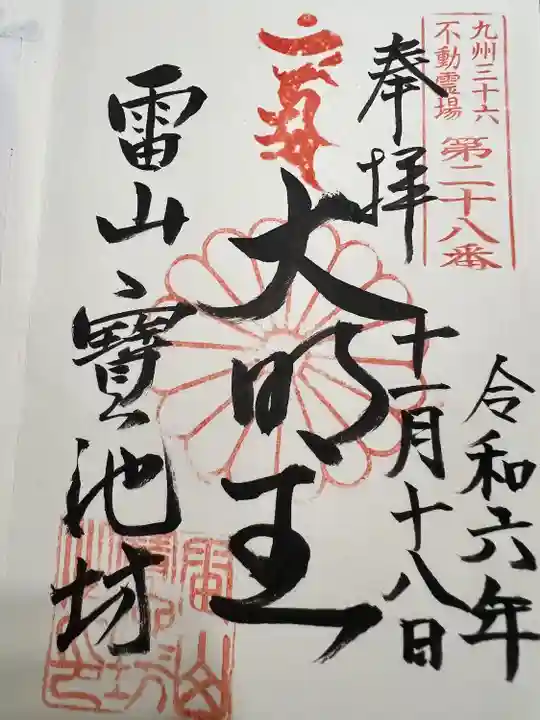 九州三十六
不動霊場
第二十八番
奉拝
令和六年
十一月十八日
大明王
雷山寳池坊